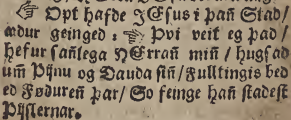 ☞ Opt hafde JEsus i þañ Stad/
ædur geinged: ☞ Þvi veit eg þad/
hefur sañlega HErrañ miñ/ hugsad
um Pijnu og Dauda siñ/ Fulltingis bed
ed Føduren þar/ So feinge hañ stadest
Pijslernar.